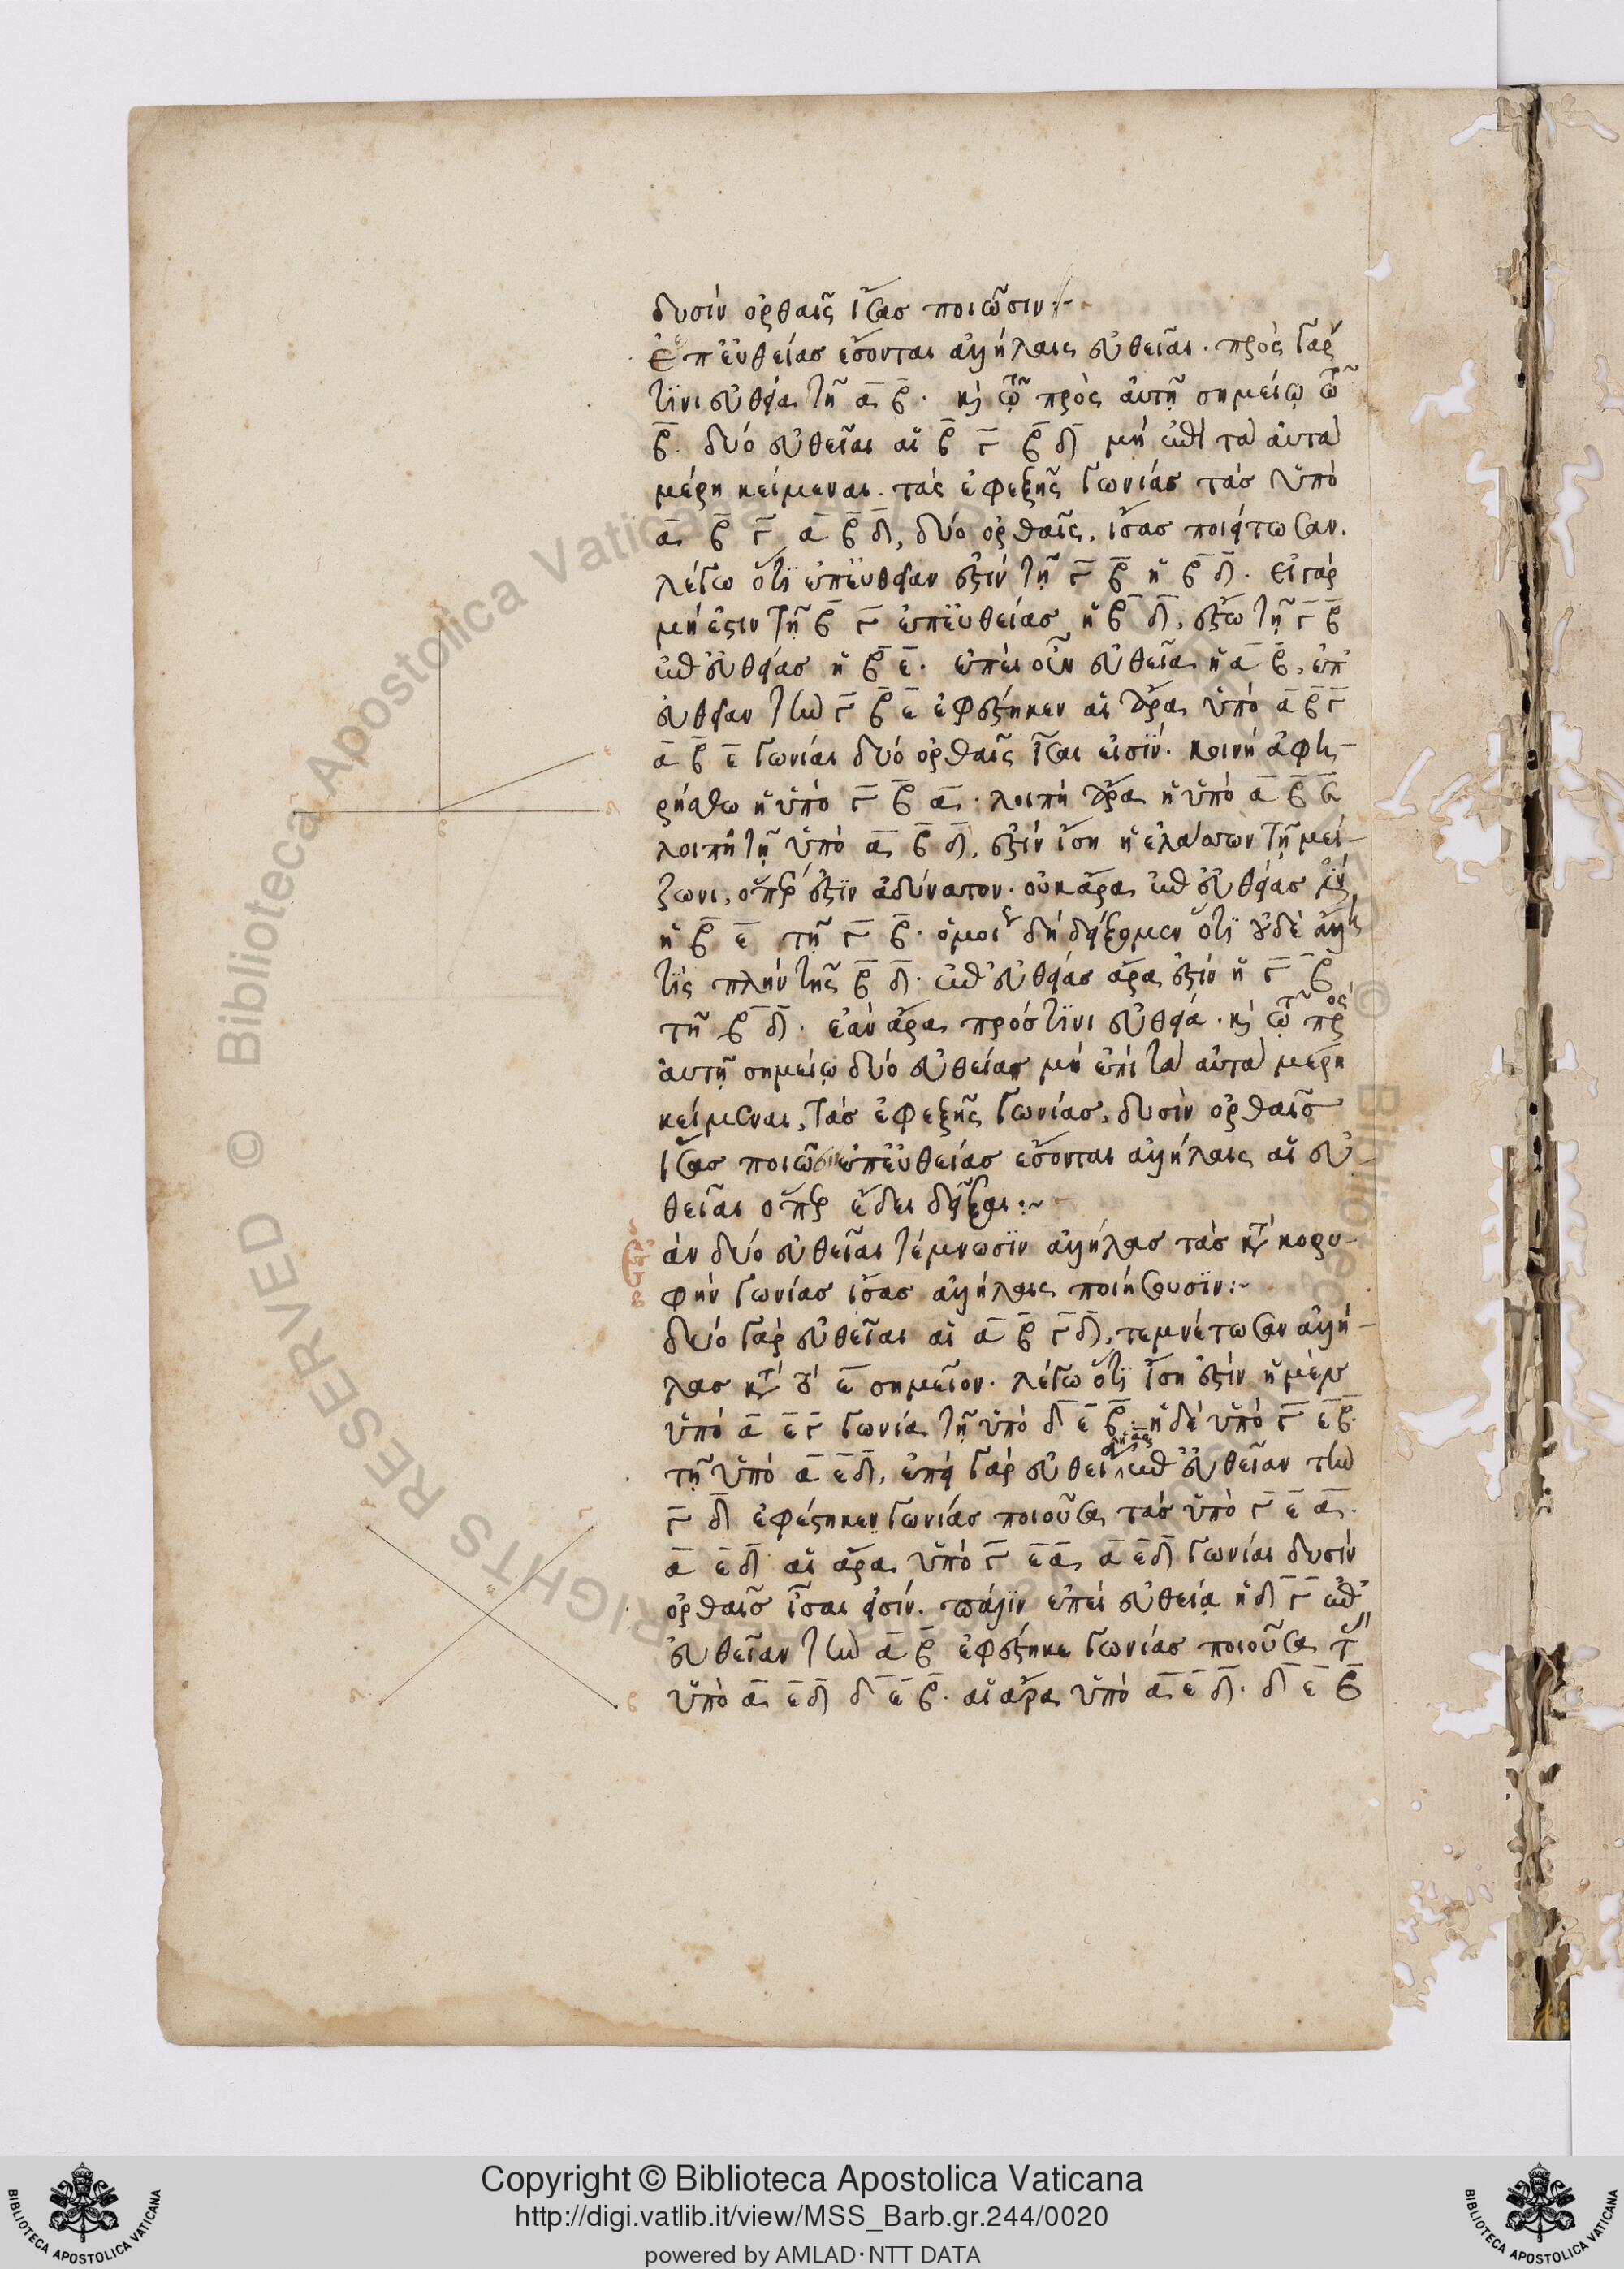 δυσὶν ὀρθαῖς ἴσας ποιῶσιν:~
ἐπ' εὐθείας ἔσονται ἀλλήλαις εὐθεῖαι. πρὸς γάρ
τινι εὐθείᾳ τῇ α β. καὶ τῷ πρὸς αὐτῇ σημείῳ τῷ
β. δύο εὐθεῖαι αἱ β γ β δ μὴ ἐπὶ τὰ αὐτὰ
μέρη κείμεναι. τὰς ἐφεξῆς γωνίας τὰς ὑπὸ
α β γ α β δ, δύο ὀρθαῖς, ἴσας ποιείτωσαν.
λέγω ὅτι ἐπ' εὐθείαν ἐστὶν τῇ γ β ἡ β δ. εἰ γὰρ
μή ἐστιν τῇ β γ ἐπ' εὐθείας ἡ β δ, ἔστω τῇ γ β
ἐπ' εὐθείας ἡ β ε. ἐπεὶ οὖν εὐθεῖα ἡ α β, ἐπ'
εὐθείαν τὴν γ β ε ἐφέστηκεν αἱ ἄρα ὑπὸ α β γ
α β ε γωνίαι δύο ὀρθαῖς ἴσαι εἰσίν. κοινὴ ἀφῃ-
ρήσθω ἡ ὑπὸ γ β α. λοιπὴ ἄρα ἡ ὑπὸ α β ε
λοιπῇ τῇ ὑπὸ α β δ, ἐστὶν ἴση ἡ ἐλάσσων τῇ μεί-
ζονι, ὅπερ ἐστὶν ἀδύνατον. οὐκ ἄρα ἐπ' εὐθείας ἐστὶν
ἡ β ε τῇ γ β. ὁμοίως δὴ δείξομεν ὅτι οὐδὲ ἄλλη
τις πλὴν τῆς β δ. ἐπ' εὐθείας ἄρα ἐστὶν ἡ γ β
τῇ β δ. ἐὰν ἄρα πρός τινι εὐθείᾳ. καὶ τῷ πρὸς
αὐτῇ σημείῳ δύο εὐθείαι μὴ ἐπὶ τὰ αὐτὰ μέρη
κείμεναι, τὰς ἐφεξῆς γωνίας, δυσὶν ὀρθαῖς
ἴσας ποιῶσιν ἐπ' εὐθείας ἔσονται ἀλλήλαις αἱ εὐ
θεῖαι ὅπερ ἔδει δεῖξαι:~
ἐὰν δύο εὐθεῖαι τέμνωσιν ἀλλήλας τὰς κατὰ κορυ-
φὴν γωνίας ἴσας ἀλλήλαις ποιήσουσιν:~
δύο γὰρ εὐθεῖαι αἱ α β γ δ, τεμνέτωσαν ἀλλή-
λας κατὰ τὸ ε σημεῖον. λέγω ὅτι ἴση ἐστὶν ἡ μὲν
ὑπὸ α ε γ γωνία τῇ ὑπὸ δ ε β. ἡ δὲ ὑπὸ γ ε β.
τῇ ὑπὸ α ε δ, ἐπεὶ γὰρ εὐθεῖα ἡ α ε ἐπ' εὐθεῖαν τὴν
γ δ ἐφέστηκεν γωνίας ποιοῦσα τὰς ὑπὸ γ ε α.
α ε δ αἱ ἄρα ὑπὸ γ ε α α ε δ γωνίαι δυσὶν
ὀρθαῖς ἴσαι εἰσίν. πάλιν ἐπεὶ εὐθεία ἡ δ γ ἐπ'
εὐθεῖαν τὴν α β ἐφέστηκε γωνίας ποιοῦσα τὰς
ὑπὸ α ε δ δ ε β. αἱ ἄρα ὑπὸ α ε δ. δ ε β
α
ε
δ
β
α
γ
ε
δ
β
© Biblioteca Apostolica Vaticana
RIGHTS RESERVED
Copyright © Biblioteca Apostolica Vaticana
http://digi.vatlib.it/view/MSS_Barb.gr.244/0020
powered by AMLAD·NTT DATA
BIBLIOTECA APOSTOLICA VATICANA
BIBLIOTECA APOSTOLICA VATICANA